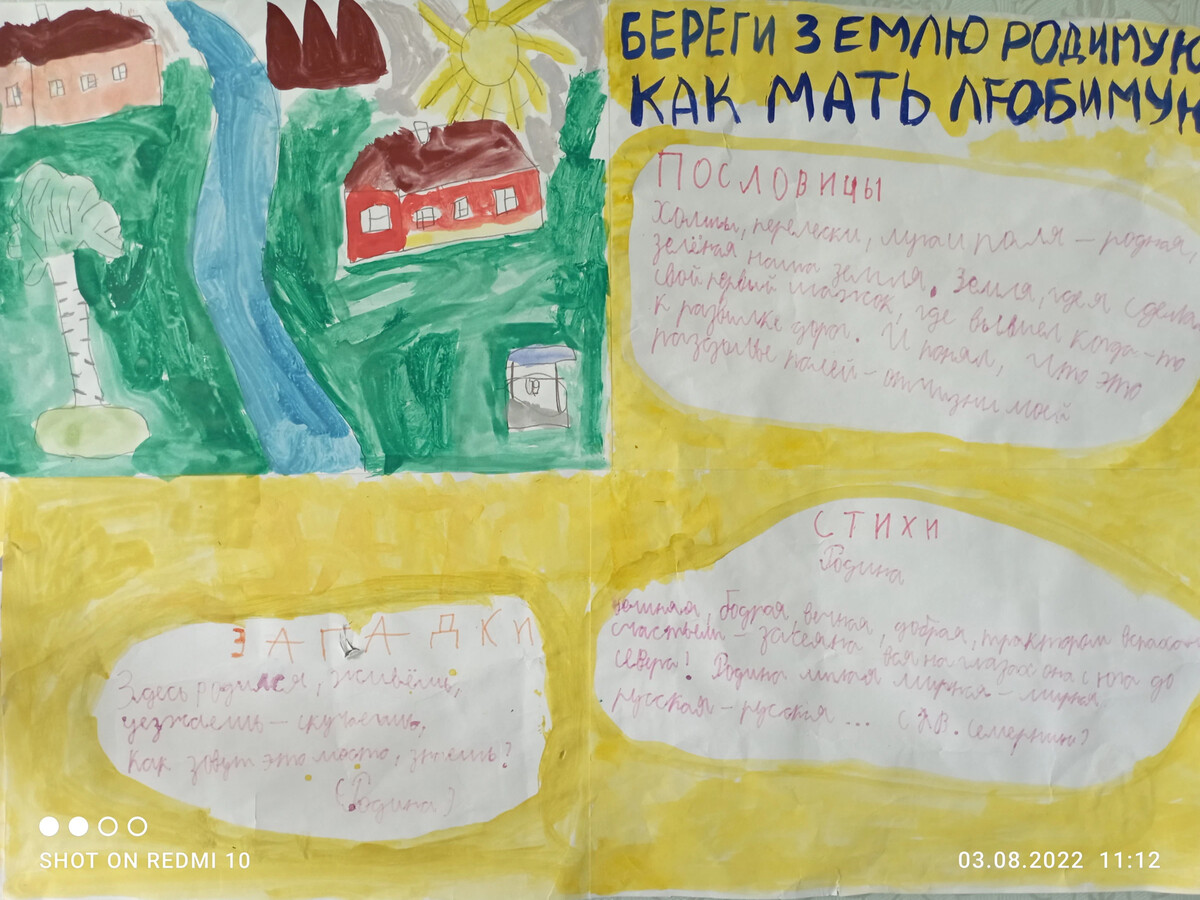 БЕРЕГИ ЗЕМЛЮ РОДИМУЮ
КАК МАТЬ ЛЮБИМУЮ
ПОСЛОВИЦЫ
Холмы, перелески, луга и поля – родная,
зелёная наша земля. Земля, где я сделал
свой первый шажок, где вышел когда-то
к развилке дорог. И понял, что это
раздолье полей – отчизны моей
СТИХИ
Родина
добрая, вечная, добрая, трактором вспахана
счастьем – засеяна вся на глазах она с юга до
севера! Родина милая мирная – мирная
русская – русская ... Семернин)
ЗАГАДКИ
Здесь родился, живёшь,
уезжаешь – скучаешь,
Как зовут это место, знаешь?
(Родина)
SHOT ON REDMI 10
03.08.2022 11:12